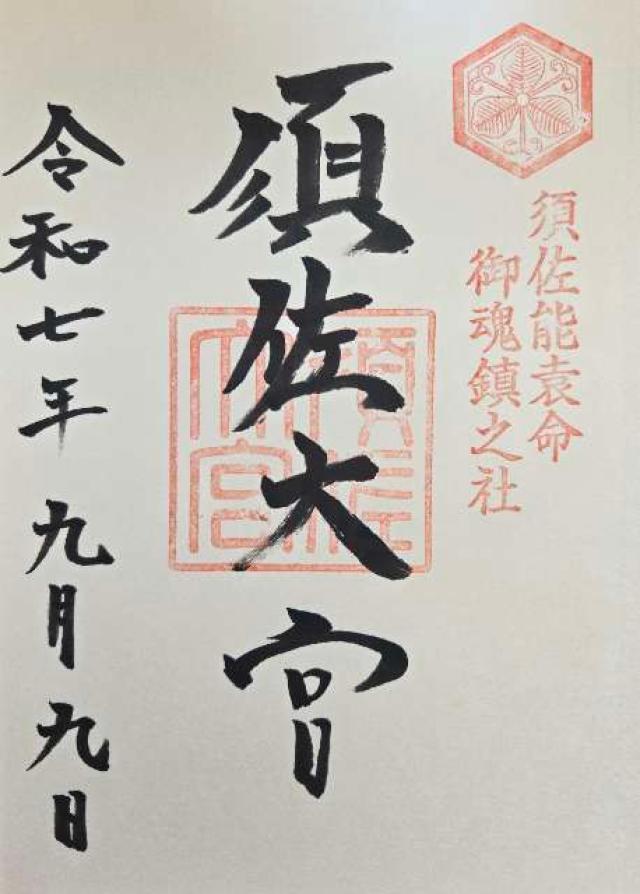 須佐能袁命
御魂鎮之社
須佐大宮
須佐大宮
令和七年九月九日